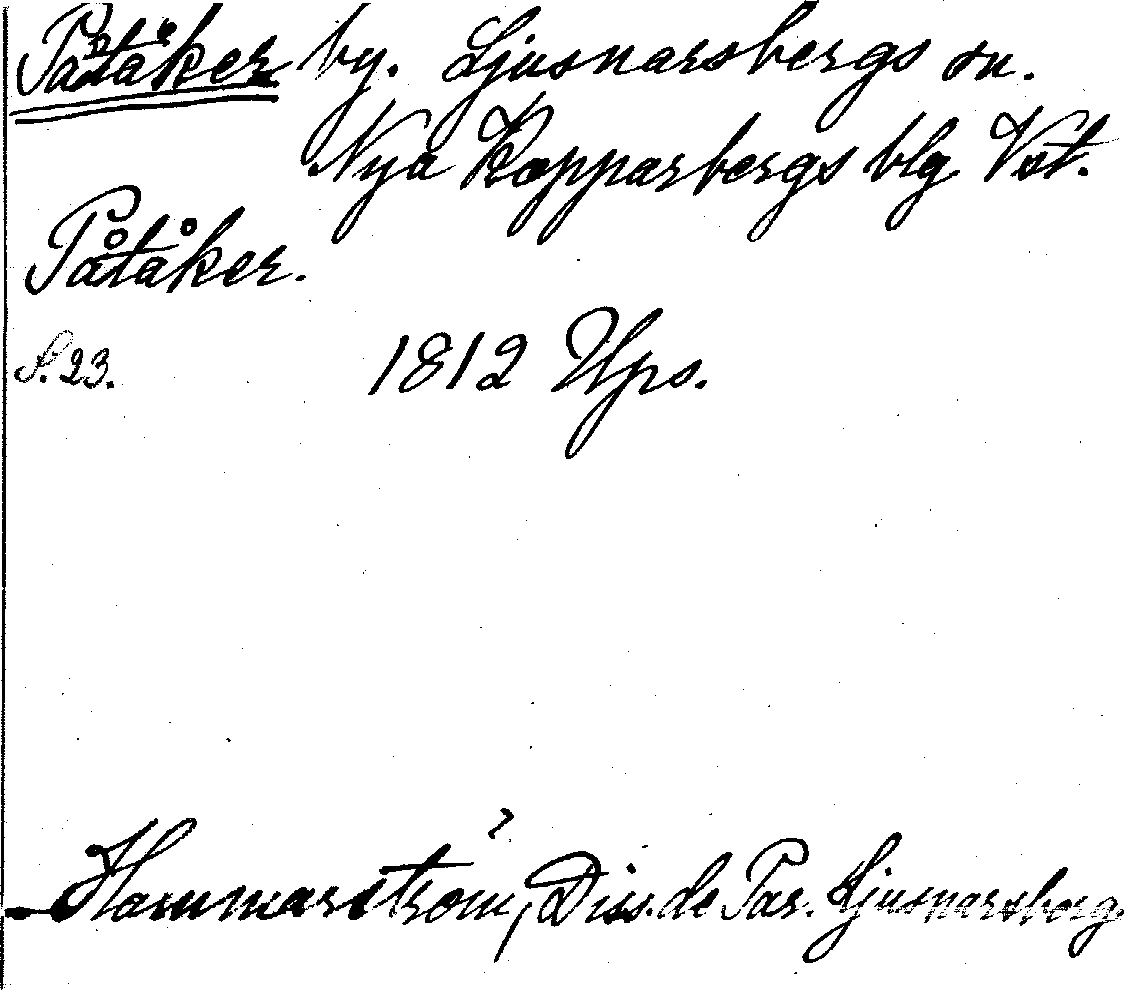 Påtåker by. Ljusnarsbergs sn.
Nya Kopparbergs blg Vst.
Påtåker.
S. 23. 1812 Ups.
Hammarström, Diss. de Par. Ljusnarsberg.